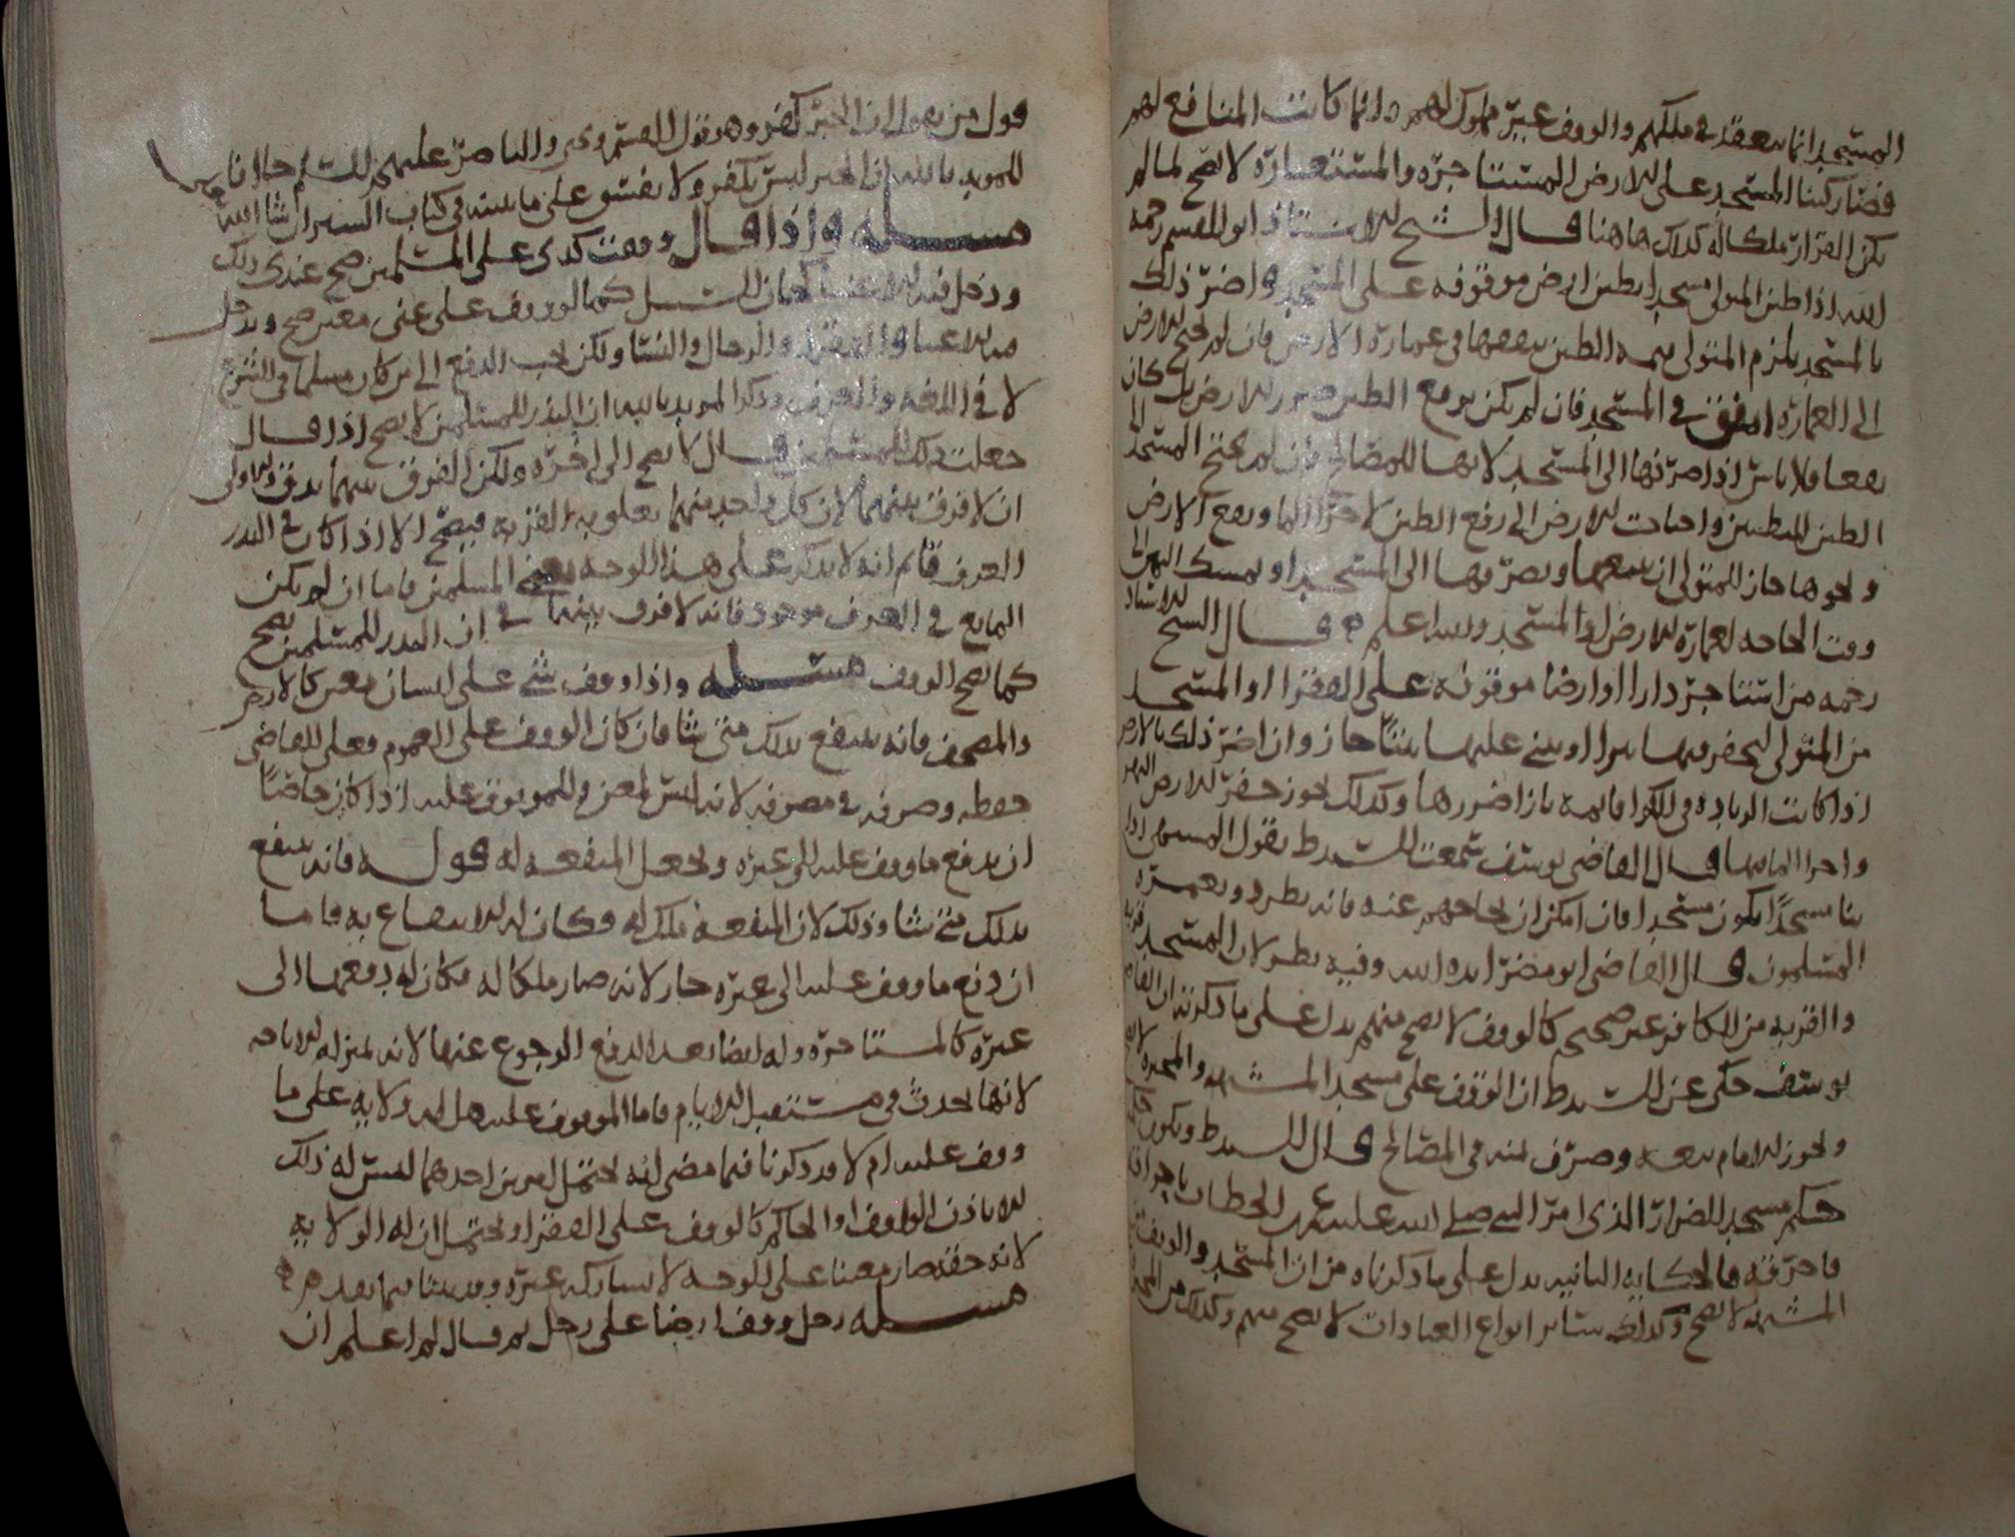 المسجد انما ينعقد في ملكهم والوقف غير مملوك لهم وانما كانت المنافع لهم
فصار كبنا المسجد على الارض المستاجره والمستعاره لا يصح لما لم
يكن القرار ملكا له كذلك هاهنا قال الشيخ الاستاذ ابو القسم رحمه
الله اذا طين المولى مسجدا بطين ارض موقوفه على المسجد واضر ذلك
بالمسجد يلزم المتولى قيمه الطين يصرفها في عمارة الارض فان لم تحتج الارض
الى العماره انفق في المسجد فان لم يكن يرفع الطين ضرر للارض بل كان
نفعا فلا باس اذا صرفها الى المسجد لانها للمصالح فان لم يحتج المسجد الى
الطين للتطيين واحتاجت الارض الى رفع الطين لاجرا الما ونفع الارض
ونحوها جاز للمتولى ان يبيعها ويصرفها الى المسجد او يمسك الثمن الى
وقت الحاجه لعمارة الارض او المسجد والله اعلم قال الشيخ الاستاذ
رحمه من استاجر دارا او ارضا موقوفه على الفقرا او المسجد
من المتولى ليحفر فيها بيرا او يبني عليها بيتا جاز وان اضر ذلك بالارض
اذا كانت الزيادة في الكرا قايمه بازا ضررها وكذلك يجوز حفر الارض النهر
واجرا الما فيها قال القاضي يوسف سمعت السيد ط يقول المشبهه اذا
بنا مسجدا يكون مسجدا فان امكن ان يحاجهم عنه فانه يطرد ويعمره
المسلمون قال القاضي ابو مضر ايده الله وفيه نظر لان المسجد قربه
والقربه من الكافر غير صحيحه كالوقف لا يصح منهم يدل على ما ذكرته ان القاضي
يوسف حكى عن السيد ط ان الوقف على مسجد المشبهه والمجبره لا يصح
ويجوز للامام بيعه وصرف ثمنه في المصالح قال السيد ط ويكون حكمه
حكم مسجد الضرار الذي امر النبي صلى الله عليه عمر بن الخطاب باحراقه
فاحرقه فالحكايه الثانيه يدل على ما ذكرناه من ان المسجد والوقف من
المشبهه لا يصح وكذلك ساير انواع العبادات لا يصح منهم وكذلك من المجبره
قول من يقول ان الجبر كفر وهو قول القسم ويحيى والناصر عليهم السلام خلافا
للمويد بالله ان الجبر ليس بكفر ولا يفسق على ما نبينه في كتاب السير ان شا الله
مسله واذا قال وقفت كذى على المسلمين صح عندى ذلك
ودخل فيه الاغنيا كابن السبيل كما لو وقف على غنى معين صح ويدخل
فيه الاغنيا والفقرا والرجال والنسا ولكن يجب الدفع الى من كان مسلما في الشرع
لا في اللغه والعرف وذكر المويد بالله ان النذر للمسلمين لا يصح اذا قال
جعلت ذلك للمسلمين قال لا يصح الى اخره ولكن الفرق بينهما يدق والاولى
ان لا فرق بينهما لان كل واحد منهما تعلق به القربه فيصح الا اذا كان في النذر
العرف قايم انه لا يذكر على هذا الوجه يعني المسلمين فاما ان لم يكن
المانع في العرف موجود فانه لا فرق بينهما في ان النذر للمسلمين يصح
كما يصح الوقف مسله واذا وقف شي على انسان معين كالارض
والمصحف فانه ينتفع بذلك متى شا فان كان الوقف على العموم فعلى القاضي
حفظه وصرفه في مصرفه لانه ليس لمعين وللموقوف عليه اذا كان خاصا
ان يدفع ما وقف عليه الى غيره ويجعل المنفعه له قوله فانه ينتفع
بذلك متى شا وذلك لان المنفعه ملك له وكان له الانتفاع به فاما
ان دفع ما وقف عليه الى غيره جاز لانه صار ملكا له فكان له دفعها الى
غيره كالمستاجره وله ايضا بعد الدفع الرجوع عنها لانه بمنزلة الاباحه
لانها تحدث في مستقبل الايام فاما الموقوف عليه هل له ولايه على ما
وقف عليه ام لا قد ذكرنا فيما مضى انه يحتمل امرين احدهما ليس له ذلك
الا باذن الواقف او الحاكم كالوقف على الفقرا ويحتمل ان له الولايه
لانه حقه صار معينا على الوجه لا يشاركه غيره وقد بينا فيما بعد
مسله رجل وقف ارضا على رجل ثم قال لم اعلم ان